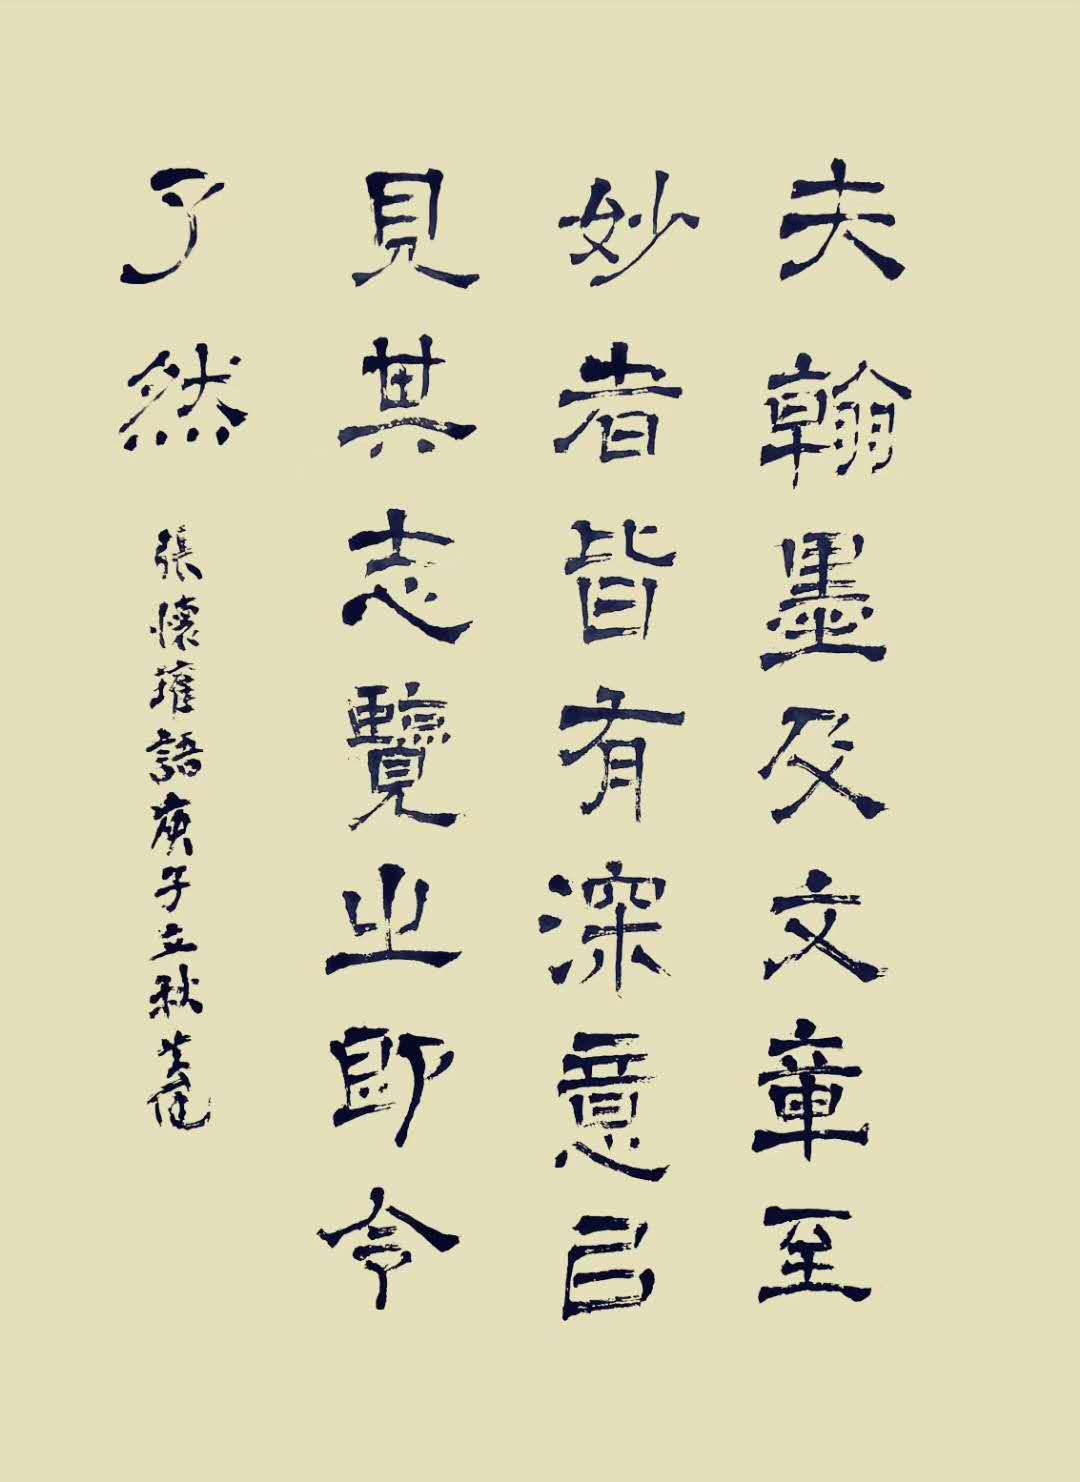 夫翰墨及文章至
妙者皆有深意㠯
見其志覽之即令
了然
張懷瓘語庚子立秋